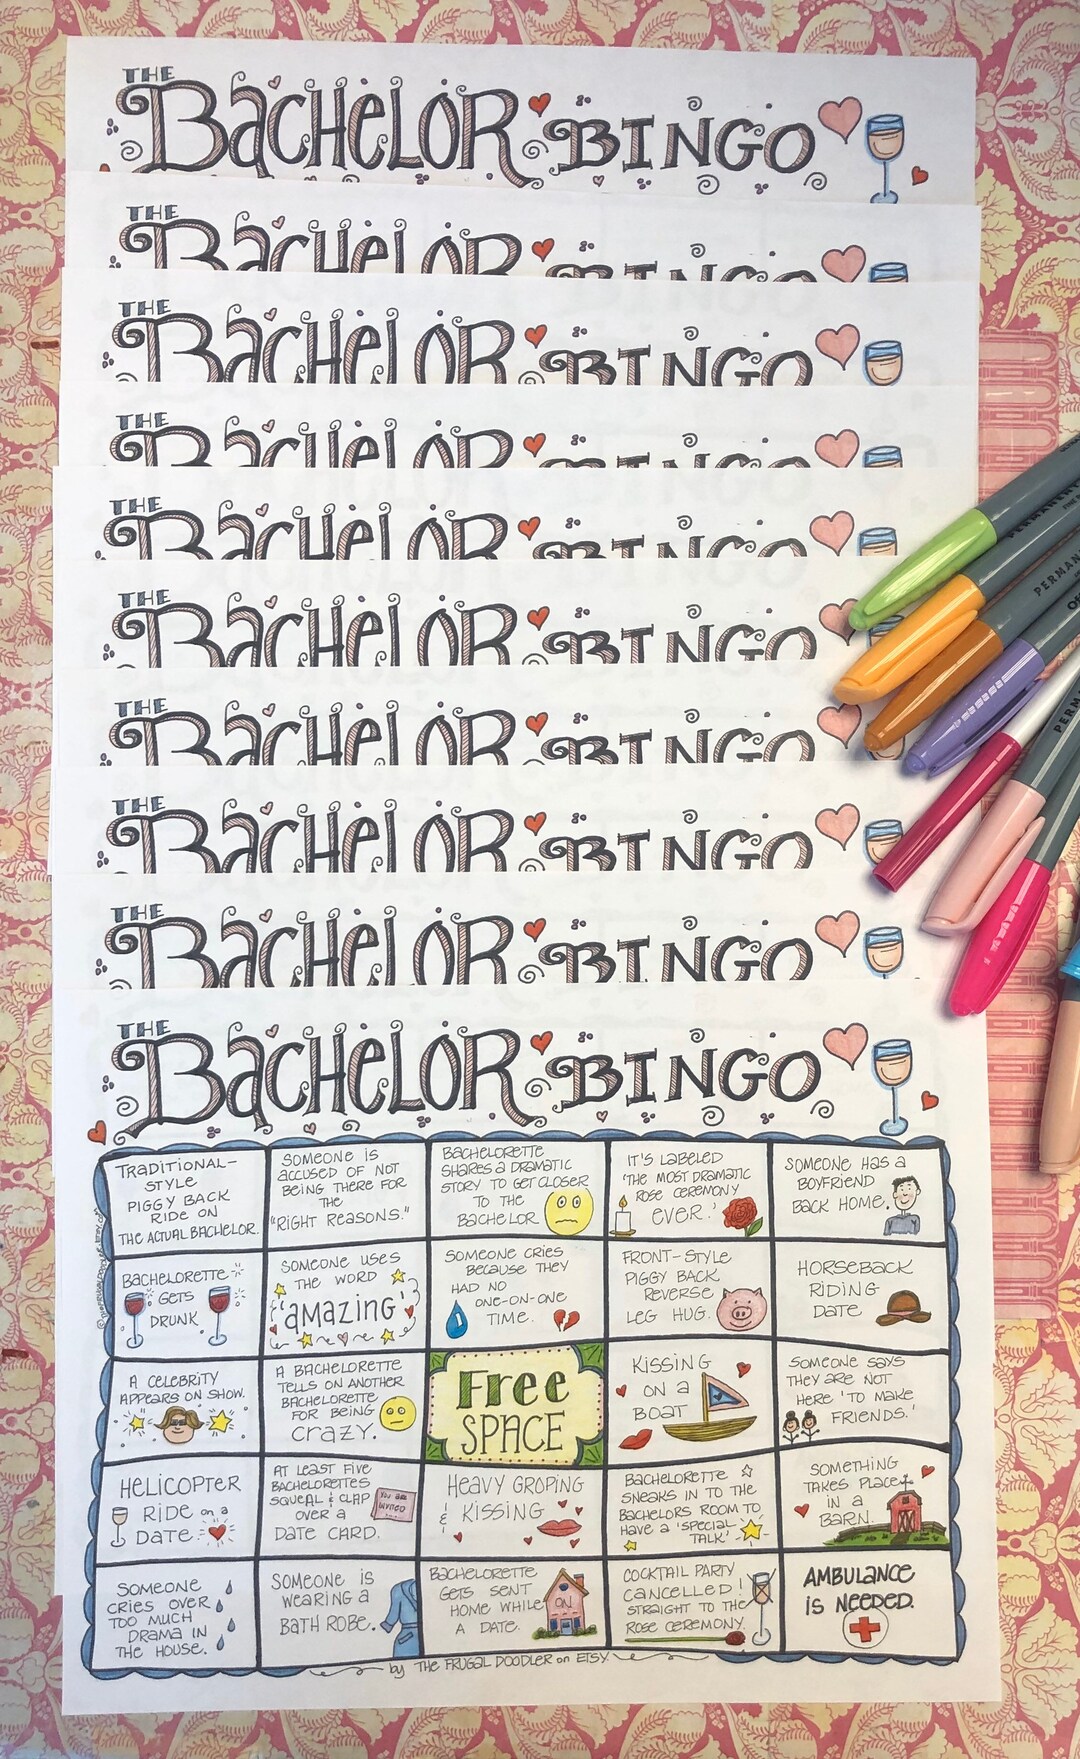 THE
BACHELOR BINGO
THE
BACHELOR BINGO
THE
BACHELOR BINGO
THE
BACHELOR BINGO
THE
BACHELOR BINGO
THE
BACHELOR BINGO
THE
BACHELOR BINGO
THE
BACHELOR BINGO
THE
BACHELOR BINGO
PERMANENT
PERMAN
PERM
THE
BACHELOR BINGO
TRADITIONAL-
STYLE
PIGGY BACK
RIDE ON
THE ACTUAL BACHELOR.
SOMEONE IS
ACCUSED OF NOT
BEING THERE FOR
THE
"RIGHT REASONS."
BACHELORETTE
SHARES A DRAMATIC
STORY TO GET CLOSER
TO THE
BACHELOR
IT'S LABELED
'THE MOST DRAMATIC
ROSE CEREMONY
EVER.'
SOMEONE HAS A
BOYFRIEND
BACK HOME.
BACHELORETTE
GETS
DRUNK
SOMEONE USES
THE WORD
"AMAZING"
SOMEONE CRIES
BECAUSE THEY
HAD NO
ONE-ON-ONE
TIME.
FRONT-STYLE
PIGGY BACK
REVERSE
LEG HUG.
HORSEBACK
RIDING
DATE
A CELEBRITY
APPEARS ON SHOW.
A BACHELORETTE
TELLS ON ANOTHER
BACHELORETTE
FOR BEING
CRAZY.
FREE
SPACE
KISSING
ON A
BOAT
SOMEONE SAYS
THEY ARE NOT
HERE 'TO MAKE
FRIENDS.'
HELICOPTER
RIDE ON A
DATE
AT LEAST FIVE
BACHELORETTES
SQUEAL & CLAP
OVER A
DATE CARD.
YOU ARE
INVITED
HEAVY GROPING
& KISSING
BACHELORETTE
SNEAKS IN TO THE
BACHELORS ROOM TO
HAVE A 'SPECIAL
TALK'
SOMETHING
TAKES PLACE
IN A
BARN.
SOMEONE
CRIES OVER
TOO MUCH
DRAMA IN
THE HOUSE.
SOMEONE IS
WEARING A
BATH ROBE.
BACHELORETTE
GETS SENT
HOME WHILE ON
A DATE.
COCKTAIL PARTY
CANCELLED!
STRAIGHT TO THE
ROSE CEREMONY.
AMBULANCE
IS NEEDED.
by THE FRUGAL DOODLER on ETSY